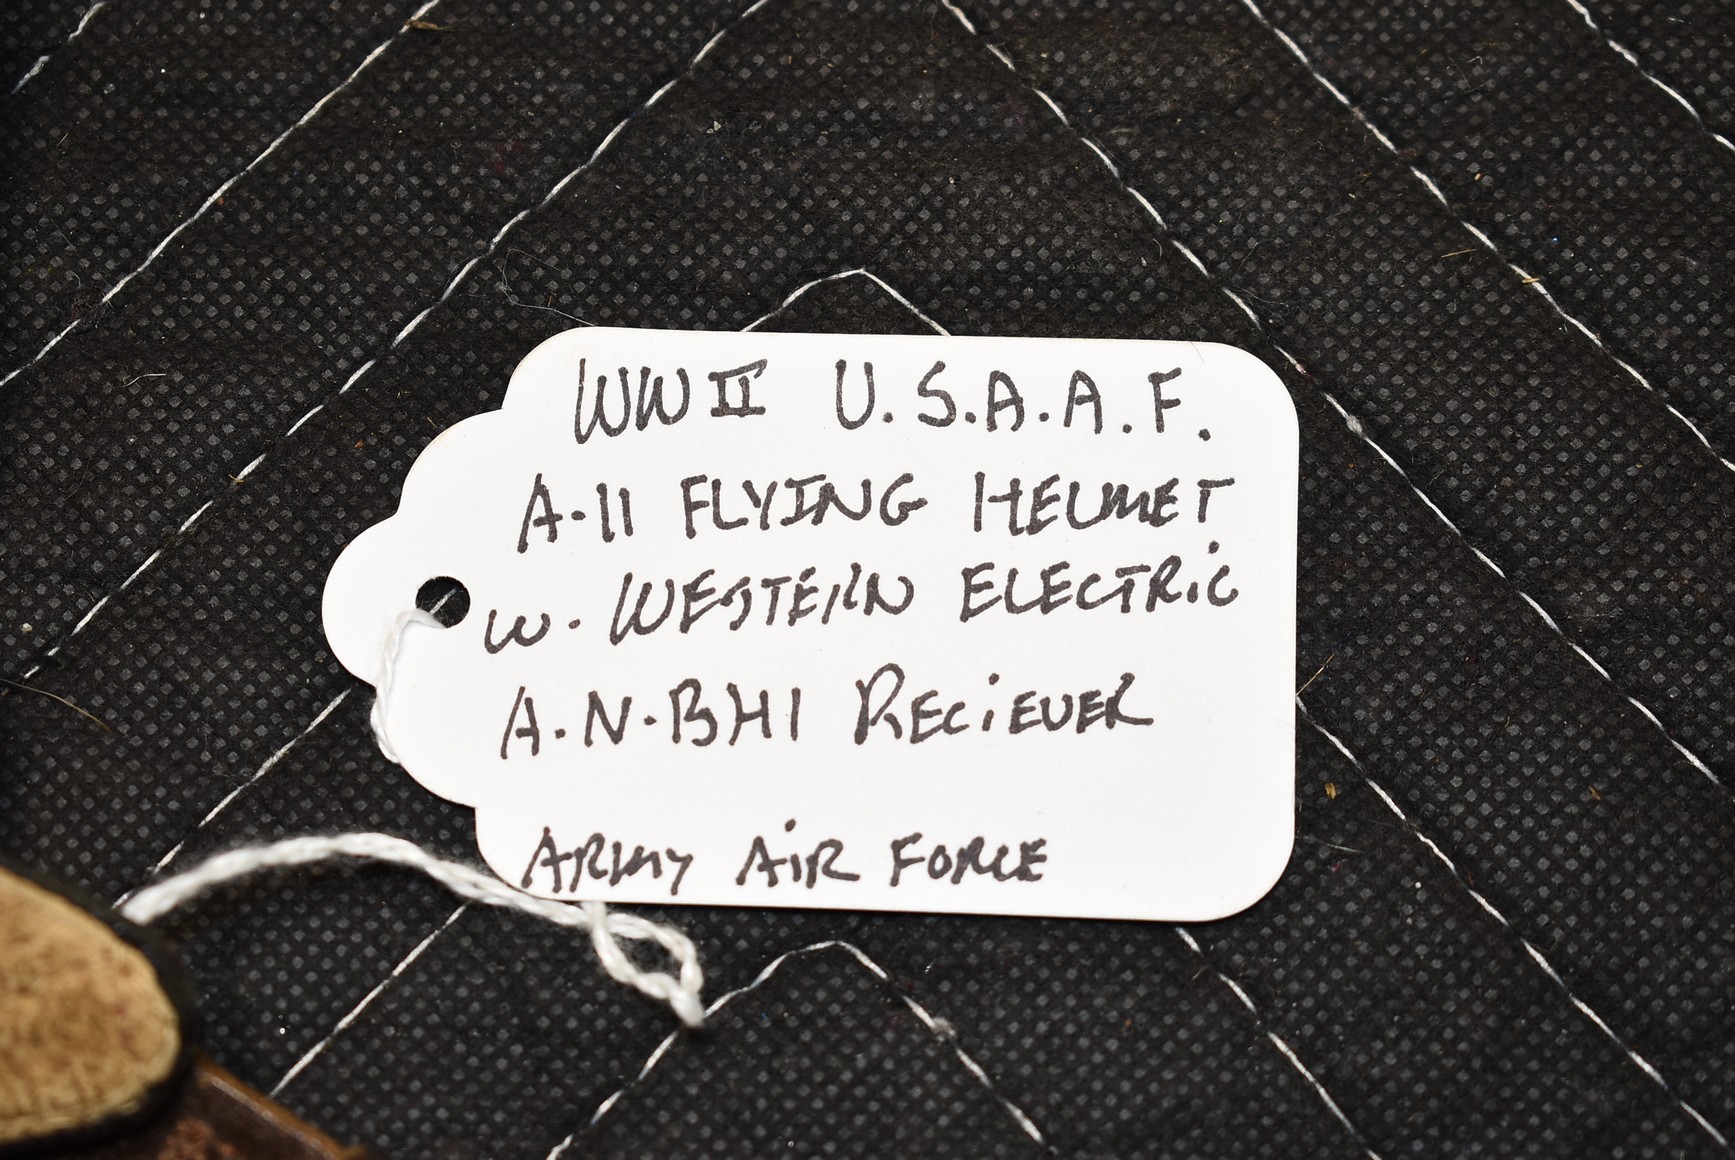 WWII U.S.A.A.F.
A-11 FLYING HELMET
W. WESTERN ELECTRIC
A.N.BH1 RECIEVER
ARMY AIR FORCE